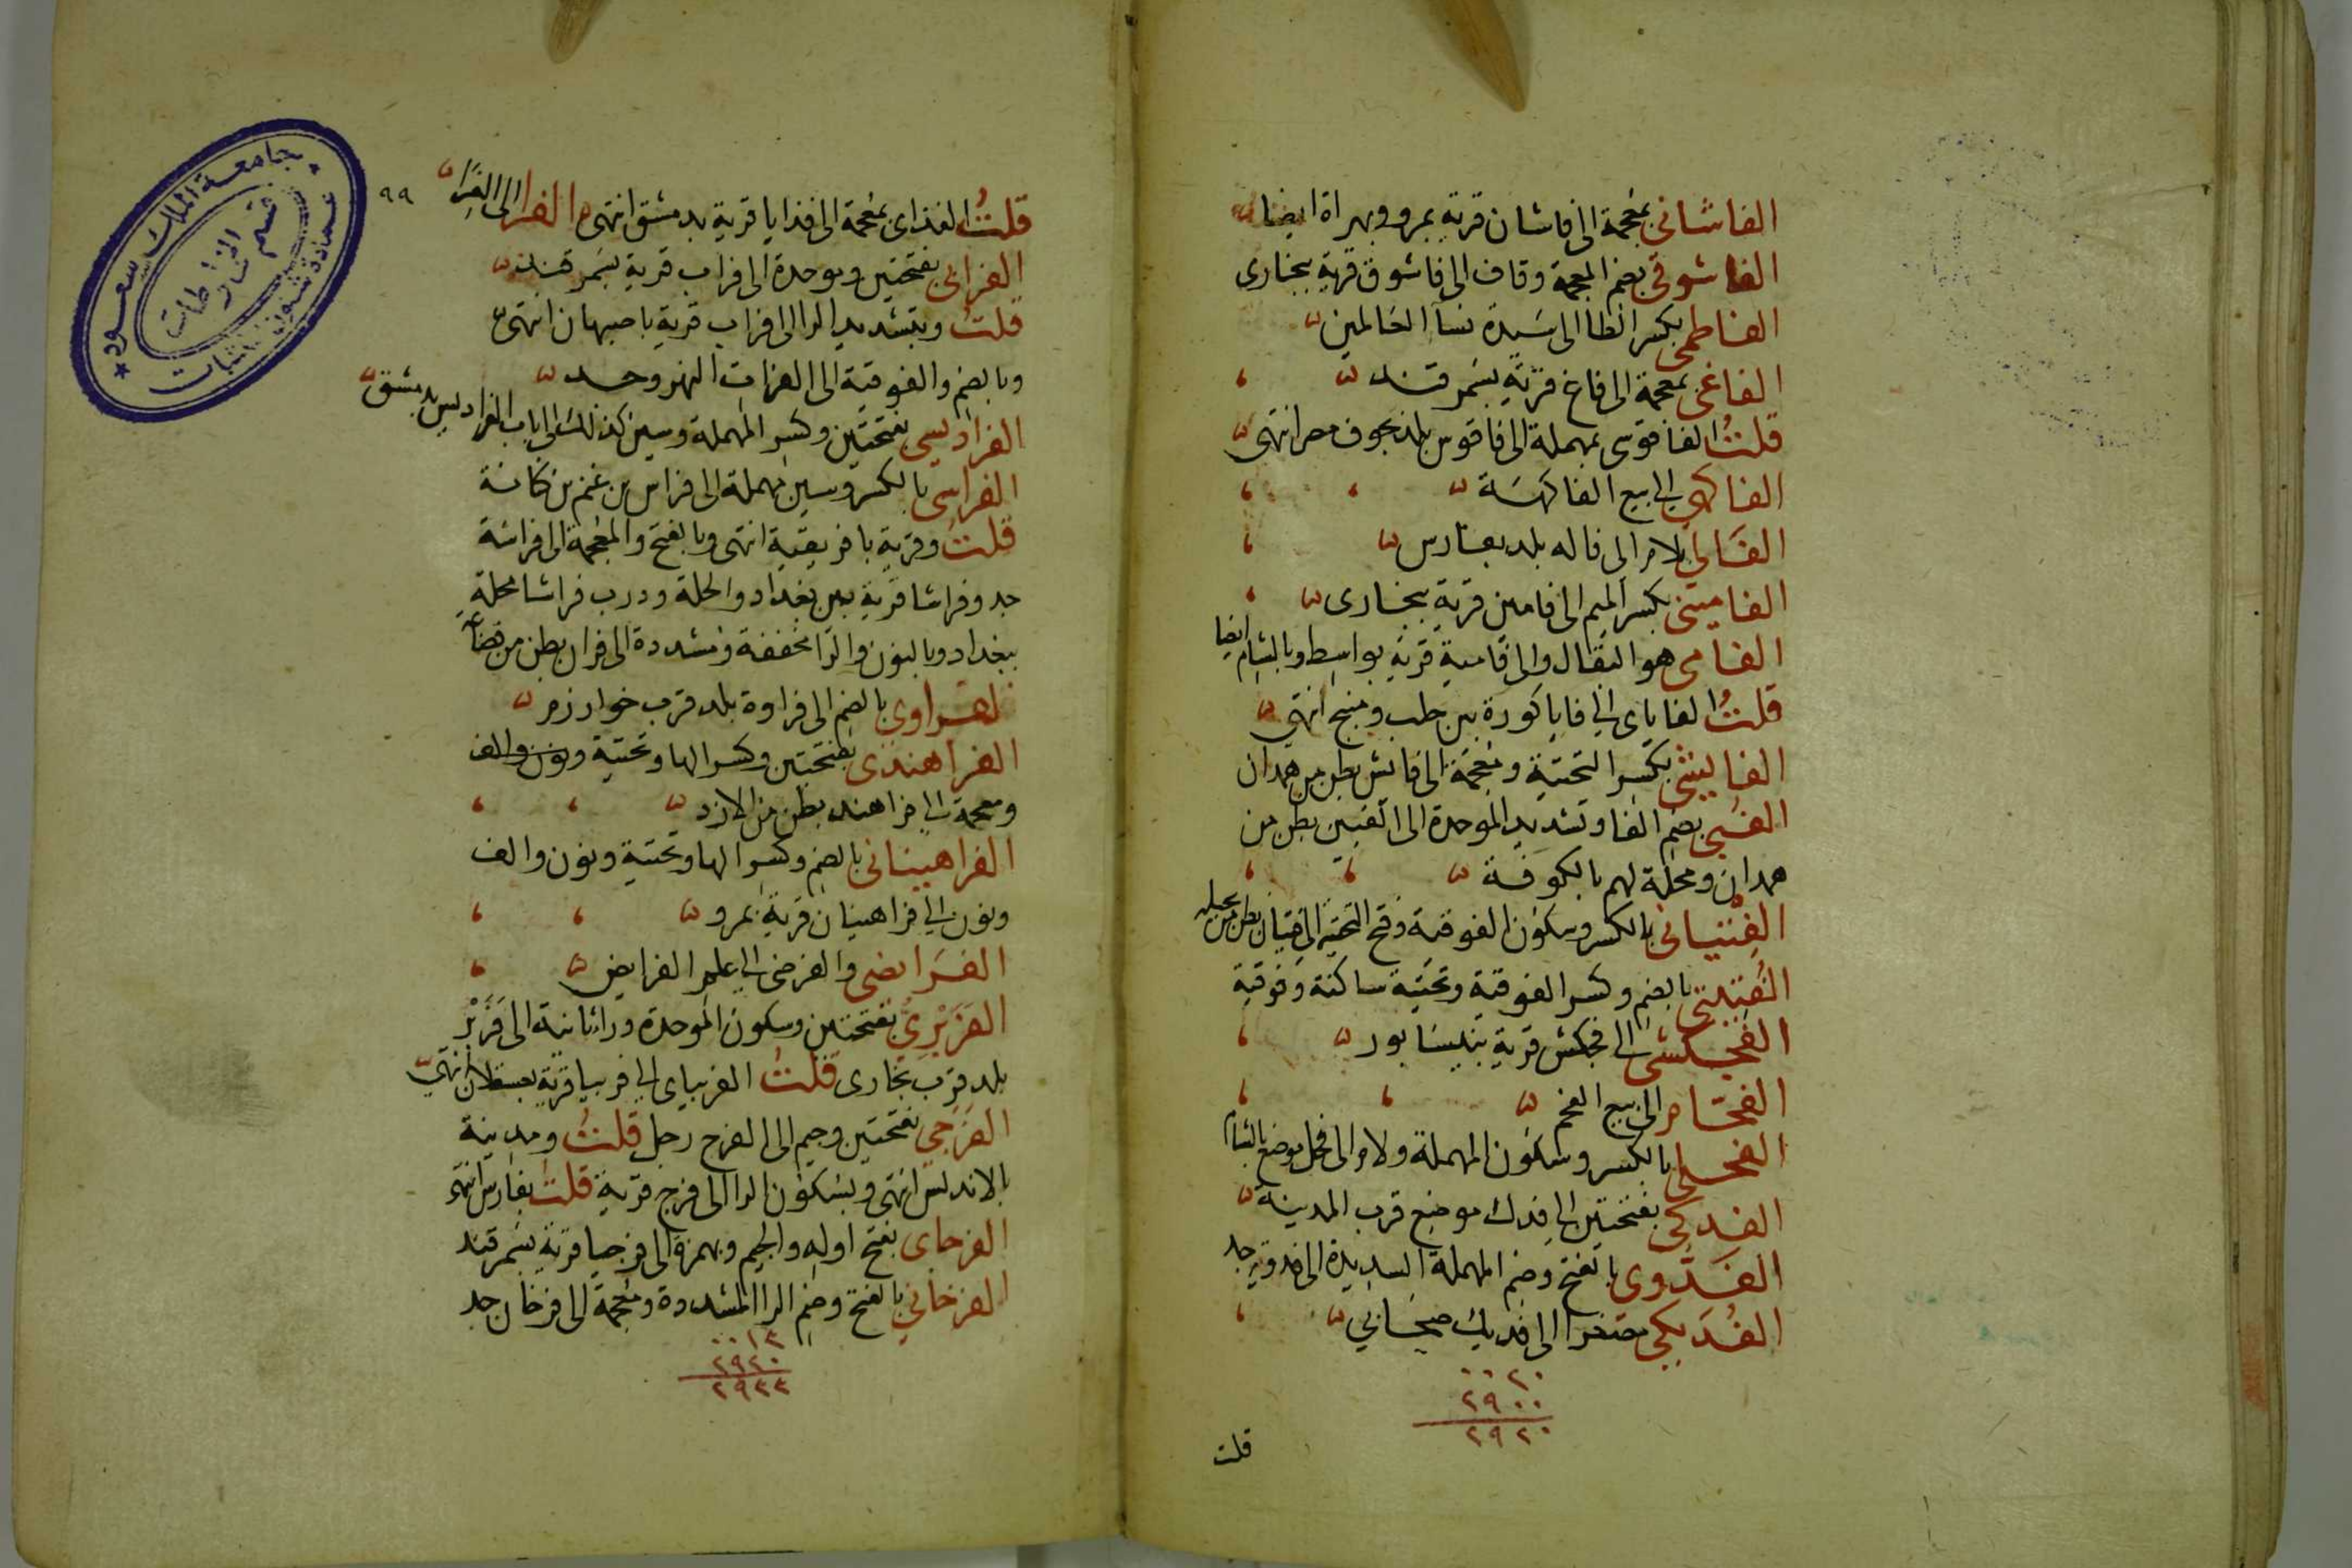 الفاشانى بمعجمة الى فاشان قرية بمرو وبهراة ايضا
الفاشوقى بضم المعجمة وقاف الى فاشوق قرية ببخارى
الفاطمى بكسر الطا الى سيدة نسآ العالمين
الفاغى بمعجمة الى فاغ قرية بسمرقند
قلت الفاقوسى بمهملة الى فاقوس بلد بحوف مصر انتهى
الفاكهى الى بيع الفاكهة
الفالى بلام الى فاله بلد بفارس
الفامينى بكسر الميم الى فامين قرية ببخارى
الفامى هو البقال والى فامية قرية بواسط وبالشام ايضا
قلت الفاياى الى فايا كورة بين حلب ومنبج انتهى
الفايشى بكسر التحتية ومعجمة الى فائش بطن من همدان
الفبى بضم الفا وتشديد الموحدة الى الفبين بطن من
همدان ومحلة لهم بالكوفة
الفتيانى بالكسر وسكون الفوقية وفتح التحتية الى فتيان بطن من بجيلة
الفتيتى بالضم وكسر الفوقية وتحتية ساكنة وفوقية
الفجكشى الى فجكش قرية بنيسابور
الفحام الى بيع الفحم
الفحلى بالكسر وسكون المهملة ولام الى فحل موضع بالشام
الفدكى بفتحتين الى فدك موضع قرب المدينة
الفدوى بالفتح وضم المهملة الشديدة الى فدويه جد
الفديكى مصغرا الى فديك صحابى
٠٠٢٠
٢٩٠٠
٢٩٢٠
قلت
٩٩
قلت الفذاى بمعجمة الى فذايا قرية بدمشق انتهى الفرا الى الفرا
الفرابى بفتحتين وموحدة الى فراب قرية بسمرقند
قلت وبتشديد الرا الى فراب قرية باصبهان انتهى
وبالضم والفوقية الى الفرات النهر وجد
الفراديسى بفتحتين وكسر المهملة وسين كذلك الى باب الفراديس بدمشق
الفراسى بالكسر وسين مهملة الى فراس بن غنم بن كنانة
قلت وقرية بافريقية انتهى وبالفتح والمعجمة الى فراشة
جد وفراشا قرية بين بغداد والحلة ودرب فراشا محلة
ببغداد وبالنون والرا مخففة ومشددة الى فران بطن من قضاعة
الفراوى بالضم الى فراوة بلد قرب خوارزم
الفراهندى بفتحتين وكسر الها وتحتية ونون والف
ومعجمة الى فراهند بطن من الازد
الفراهينانى بالضم وكسر الها وتحتية ونون والف
ونون الى فراهينان قرية بمرو
الفرايضى والفرضى الى علم الفرايض
الفربرى بفتحتين وسكون الموحدة وراء ثانية الى فربر
بلد قرب بخارى قلت الفرياى الى فربيا قرية بعسقلان انتهى
الفرجى بفتحتين وجيم الى الفرج رجل قلت ومدينة
بالاندلس انتهى وبسكون الرا الى فرج قرية قلت بفارس انتهى
الفرجاى بفتح اوله والجيم وبهمزة الى فرجيا قرية بسمرقند
الفرخانى بالفتح وضم الرا المشددة ومعجمة الى فرخان جد
٠٠١٣
٢٩٢٠
٢٩٣٣
جامعة الملك سعود
عمادة شئون المكتبات
قسم المخطوطات